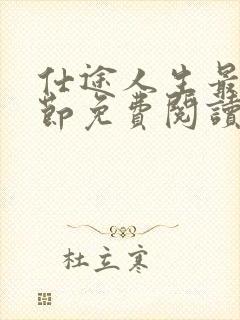 仕途人生最
節免費閱讀
杜立寒